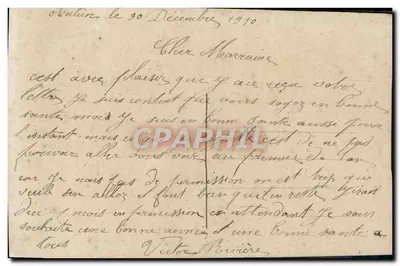 le 30 Décembre 1910
Cher Marraine
c'est avec plaisir que j'ai reçu votre
lettre je suis content que vous soyez en bonne
santé moi je suis en bonne santé aussi pour
l'instant mais c'est de ne pas
pouvoir aller vous voir au premier de l'an
car je n'ai pas de permission on est trop que
seule s'en aller il faut bien qu'il en reste
d'ici 3 mois en permission en attendant je vous
souhaite une bonne année et une bonne santé a
tous Victor Rivière
CPARAMA